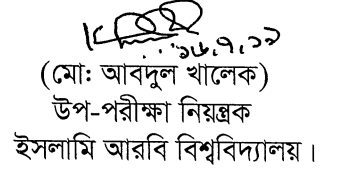 (মো: আবদুল খালেক)
উপ-পরীক্ষা নিয়ন্ত্রক
ইসলামি আরবি বিশ্ববিদ্যালয় ।